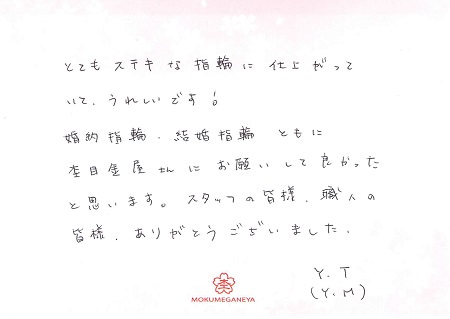 とてもステキな指輪に仕上がって
いて、うれしいです!
婚約指輪、結婚指輪ともに
杢目金屋さんにお願いして良かった
と思います。スタッフの皆様、職人の
皆様、ありがとうございました。
Y.T
(Y.M)
杢
MOKUMEGANEYA